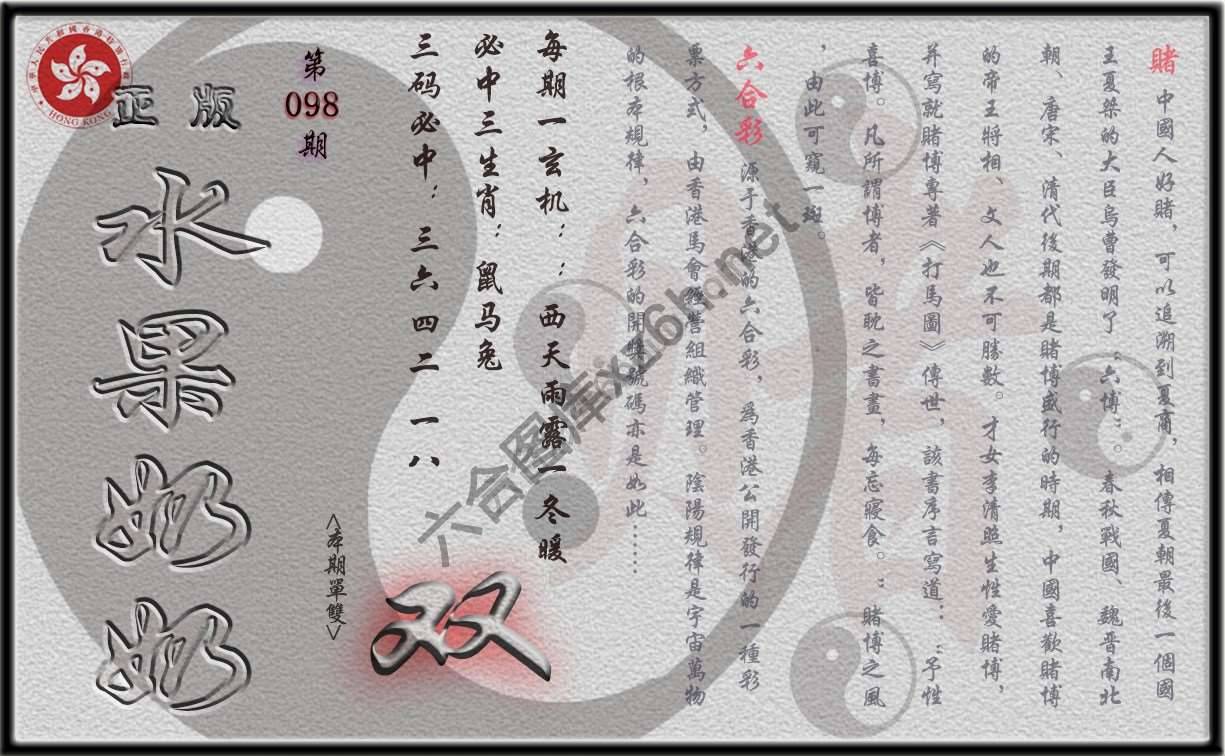 賭 中國人好賭，可以追溯到夏商，相傳夏朝最後一個國
王夏桀的大臣烏曹發明了“六博”。春秋戰國、魏晋南北
朝、唐宋、清代後期都是賭博盛行的時期，中國喜歡賭博
的帝王將相、文人也不可勝數。才女李清照生性愛賭博，
并寫就賭博專著《打馬圖》傳世，該書序言寫道：“予性
喜博。凡所謂博者，皆耽之晝夜，每忘寢食。”賭博之風
，由此可窺一斑。
六合彩 源于香港的六合彩，爲香港公開發行的一種彩
票方式，由香港馬會經營組織管理。陰陽規律是宇宙萬物
的根本規律，六合彩的開獎號碼亦是如此……
每期一玄机：：西天雨露一冬暖
必中三生肖：鼠马兔
三码必中：三六四二一八
第
098
期
<本期單雙>
双
正版
水果奶奶
中華人民共和國香港特别行政區
HONG KONG
六合图库xg6h.net